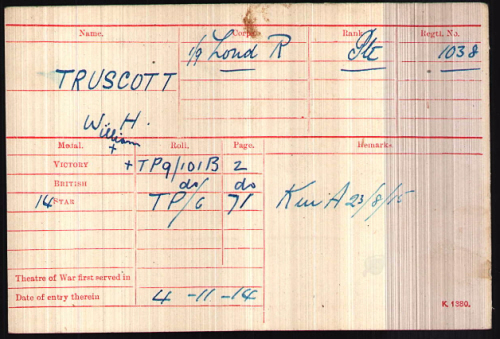 Name. Corps. Rank. Regtl. No.
TRUSCOTT 1/9 Lond R Pte 1038
W. H.
William
+
Medal. Roll. Page. Remarks.
VICTORY + TP9/101B 2
BRITISH do do
14 STAR TP/6 71 K in A 23/8/15
Theatre of War first served in
Date of entry therein 4 -11 -14
K. 1380.